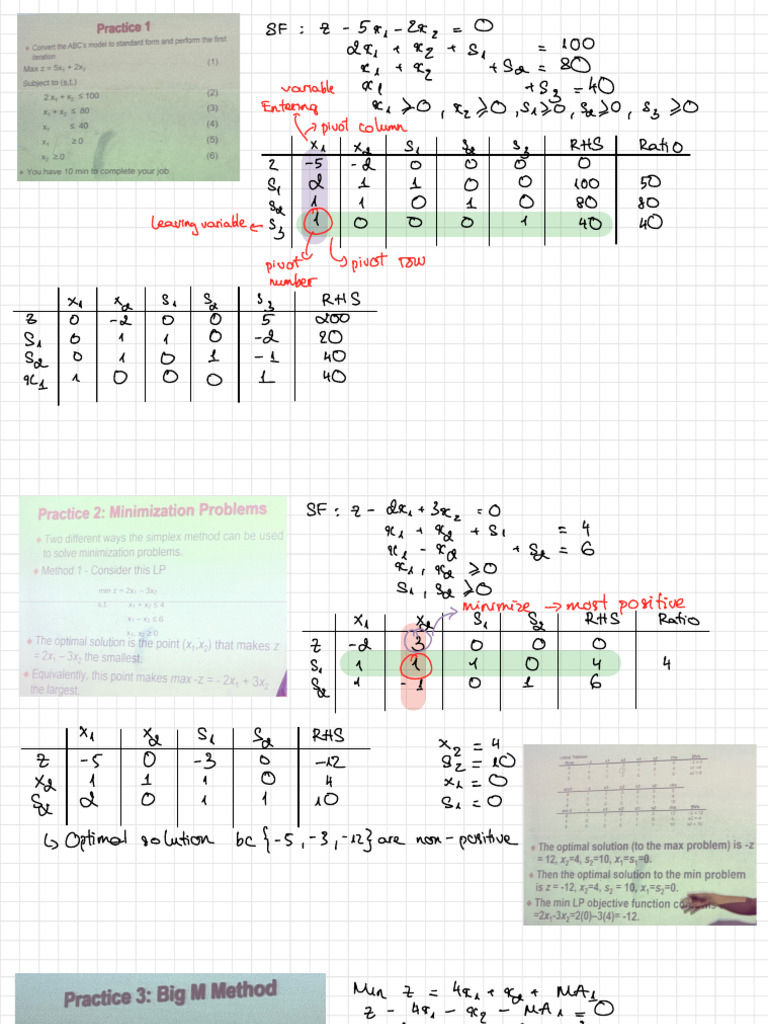 Practice 1
Convert the ABC's model to standard form and perform the first
iteration
Max z = 5x₁ + 2x₂ (1)
Subject to (s.t.)
2 x₁ + x₂ ≤ 100 (2)
x₁ + x₂ ≤ 80 (3)
x₁ ≤ 40 (4)
x₁ ≥ 0 (5)
x₂ ≥ 0 (6)
You have 10 min to complete your job
SF : z - 5x₁ - 2x₂ = 0
2x₁ + x₂ + S₁ = 100
x₁ + x₂ + S₂ = 80
x₁ + S₃ = 40
x₁ ≥ 0, x₂ ≥ 0, S₁ ≥ 0, S₂ ≥ 0, S₃ ≥ 0
variable
Entering
pivot column
x₁ x₂ S₁ S₂ S₃ RHS Ratio
Z -5 -2 0 0 0 0
S₁ 2 1 1 0 0 100 50
S₂ 1 1 0 1 0 80 80
leaving variable ← S₃ 1 0 0 0 1 40 40
pivot number
pivot row
x₁ x₂ S₁ S₂ S₃ RHS
Z 0 -2 0 0 5 200
S₁ 0 1 1 0 -2 20
S₂ 0 1 0 1 -1 40
x₁ 1 0 0 0 1 40
Practice 2: Minimization Problems
Two different ways the simplex method can be used
to solve minimization problems.
Method 1 - Consider this LP
min z = 2x₁ - 3x₂
s.t. x₁ + x₂ ≤ 4
x₁ - x₂ ≤ 6
x₁, x₂ ≥ 0
The optimal solution is the point (x₁,x₂) that makes z
= 2x₁ – 3x₂ the smallest.
Equivalently, this point makes max -z = - 2x₁ + 3x₂
the largest.
SF : z - 2x₁ + 3x₂ = 0
x₁ + x₂ + S₁ = 4
x₁ - x₂ + S₂ = 6
x₁, x₂ ≥ 0
S₁, S₂ ≥ 0
minimize → most positive
x₁ x₂ S₁ S₂ RHS Ratio
Z -2 3 0 0 0
S₁ 1 1 1 0 4 4
S₂ 1 -1 0 1 6
x₁ x₂ S₁ S₂ RHS
Z -5 0 -3 0 -12
x₂ 1 1 1 0 4
S₂ 2 0 1 1 10
x₂ = 4
S₂ = 10
x₁ = 0
S₁ = 0
↳ Optimal solution bc {-5, -3, -12} are non-positive
The optimal solution (to the max problem) is -z
= 12, x₂=4, s₂=10, x₁=s₁=0.
Then the optimal solution to the min problem
is z = -12, x₂=4, s₂ = 10, x₁=s₂=0.
The min LP objective function
=2x₁-3x₂=2(0)–3(4)= -12.
Practice 3: Big M Method
Min z = 4x₁ + x₂ + MA₁
z - 4x₁ - x₂ - MA₁ = 0